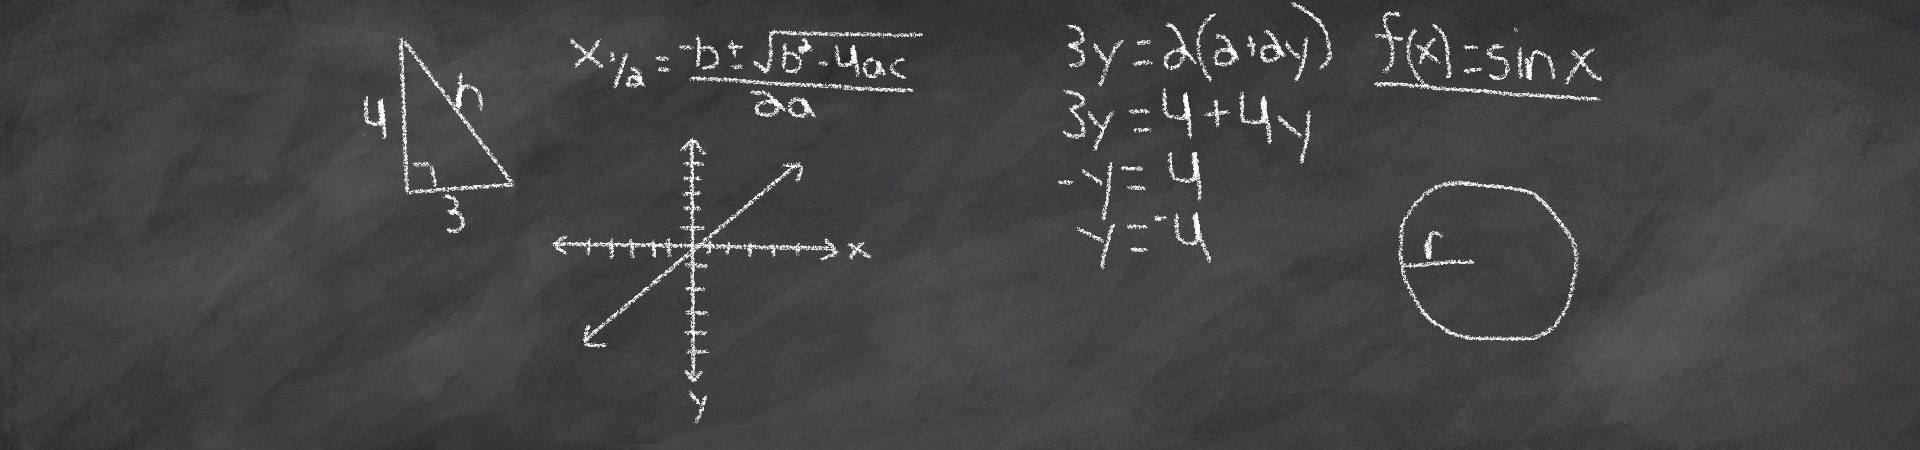 4
h
3
x 1/2 = -b ± √b² - 4ac
2a
x
y
3y = 2(2+2y)
3y = 4 + 4y
-y = 4
y = -4
f(x) = sin x
r